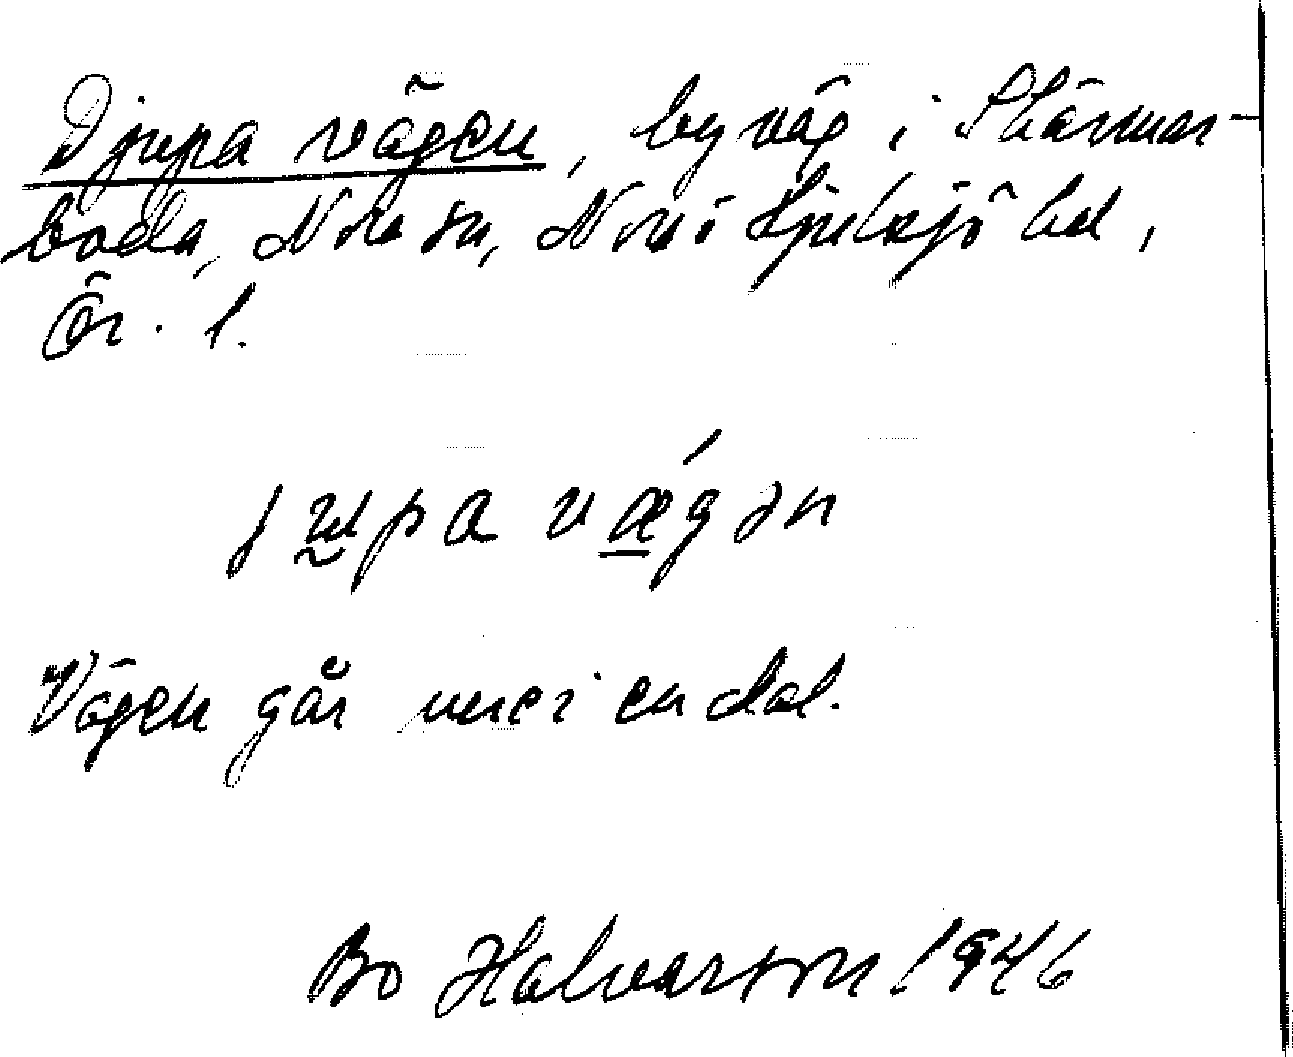 Djupa vägen, byväg i Skärmar-
boda, Nora sn, Nora o Hjulsjö bd,
Ör. l.
jupa vægən
Vägen går ner i en dal.
Bo Halvarson 1946